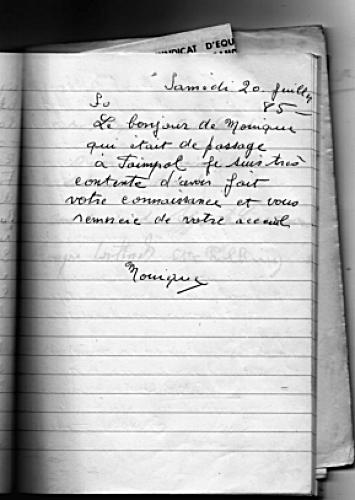 SYNDICAT D'EQU
Samedi 20 Juillet
85 —
Le bonjour de Monique
qui était de passage
à Paimpol je suis tres
contente d'avoir fait
votre connaissance et vous
remercie de votre acceuil
Monique